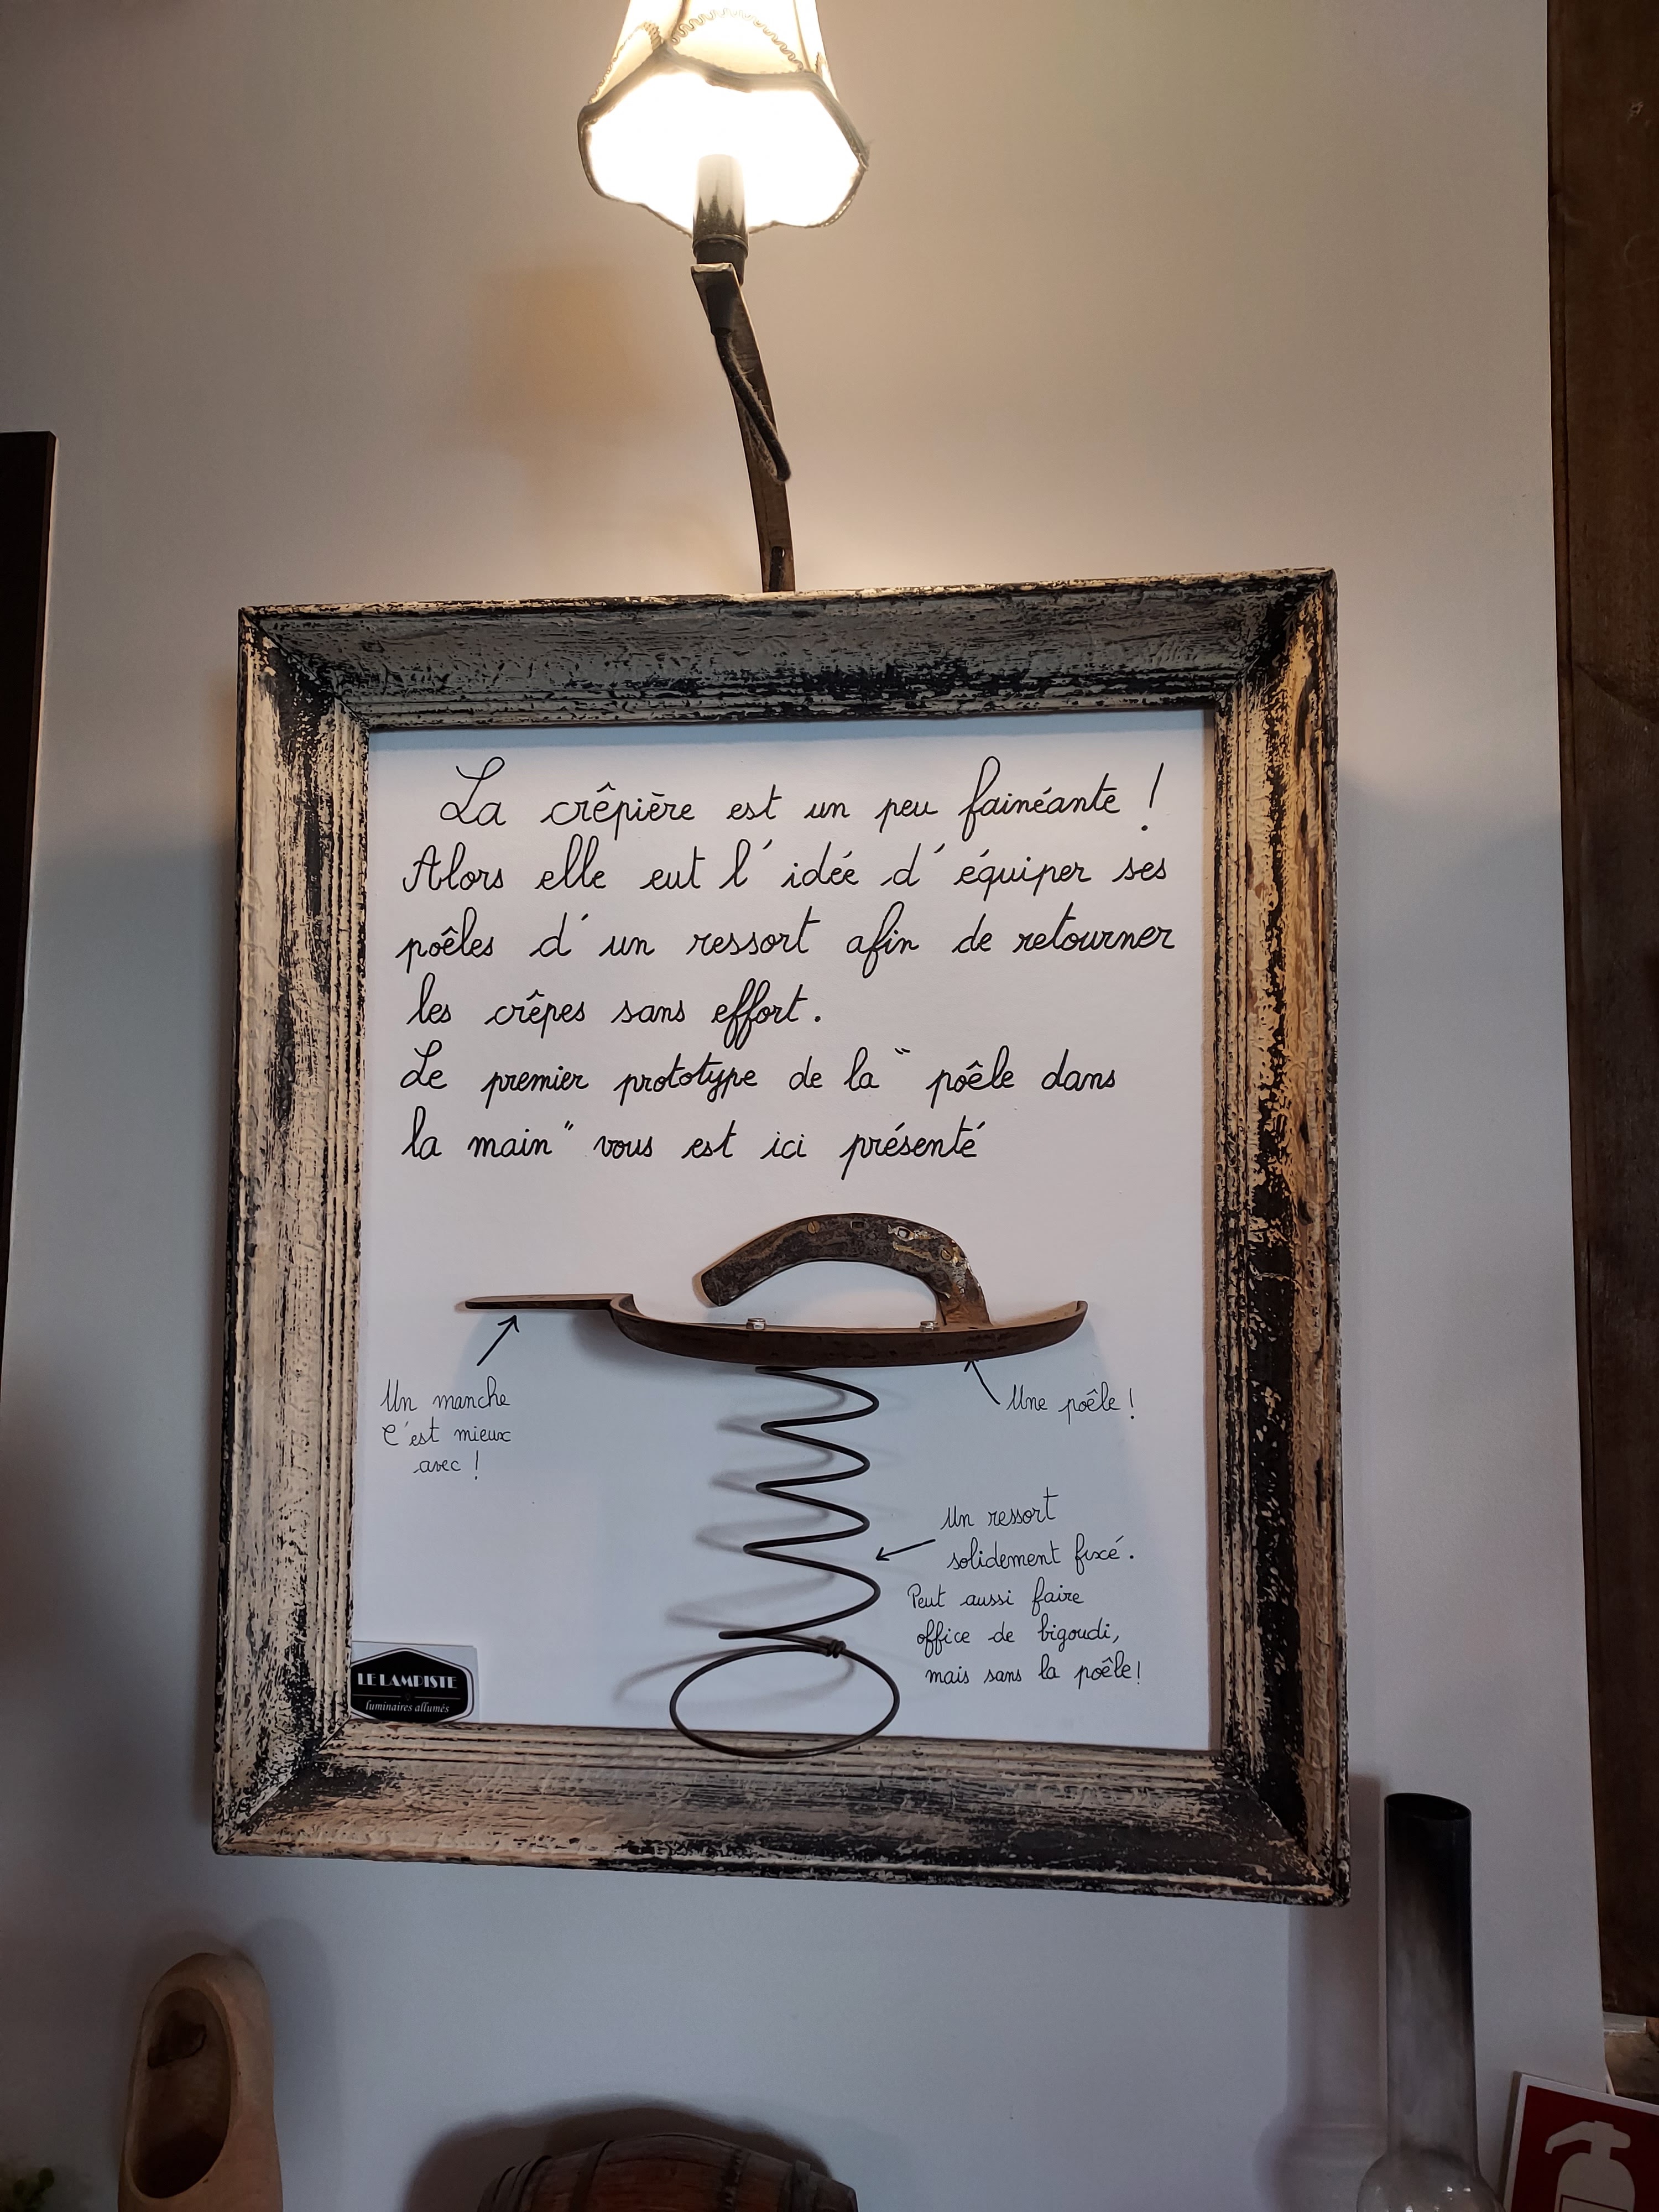 La crêpière est un peu fainéante !
Alors elle eut l'idée d'équiper ses
poêles d'un ressort afin de retourner
les crêpes sans effort.
Le premier prototype de la "poêle dans
la main" vous est ici présenté
Un manche
C'est mieux
avec !
Une poêle !
Un ressort
solidement fixé.
Peut aussi faire
office de bigoudi,
mais sans la poêle !
LE LAMPISTE
luminaires allumés